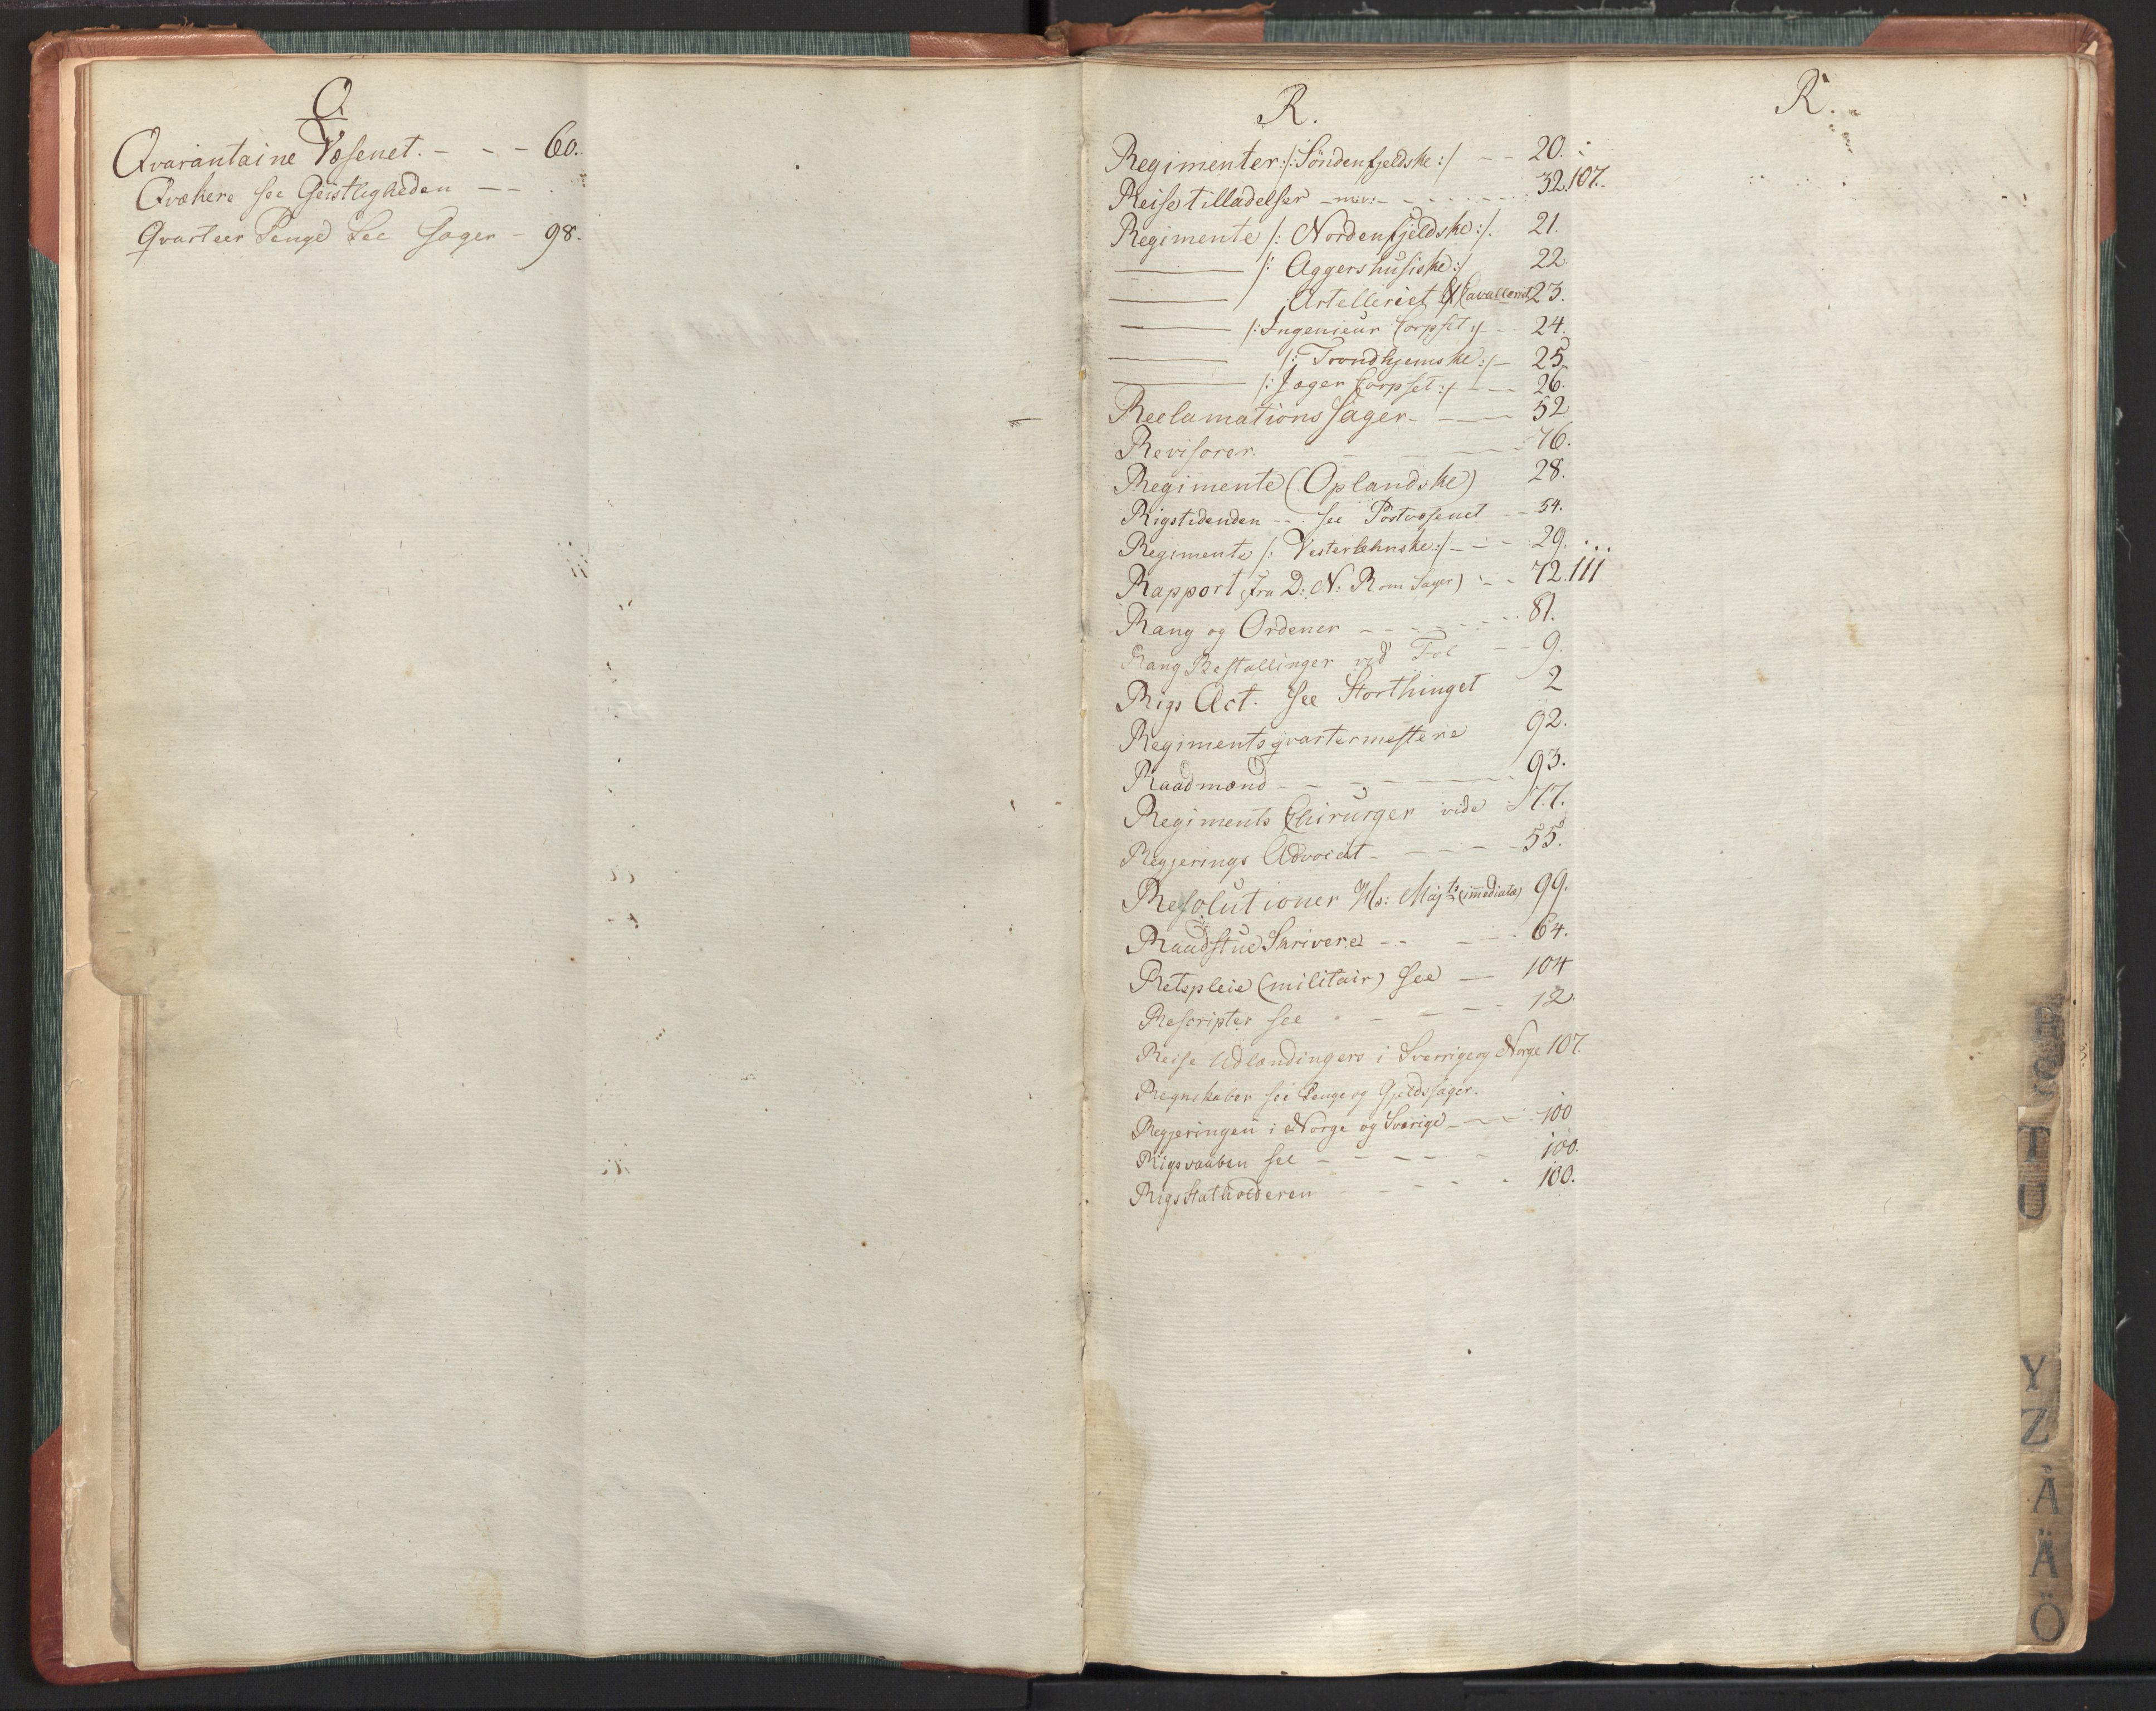 Q.
Qvarantaine Væsenet. - - - 60.
Qvækere see Geistligheden - -
Qvarteer Penge See Sager - 98.
R.
Regimenter /: Söndenfjeldske :/ - - 20.
Reisetilladelser - - - - 32. 107.
Regimente /: Nordenfjeldske :/. 21.
——— /: Aggershusiske :/ 22.
——— /: Artelleriet & Cavalleriet 23.
——— /: Ingenieur Corpset :/ - - 24.
——— /: Trondhjemske :/ - 25.
——— /: Jæger Corpset :/ - - - 26.
Reclamations Sager - - - - 52
Revisorer. - - - - 76.
Regimente (Oplandske) 28.
Rigstidenden - - . see Postvæsenet - - 54.
Regimente /: Vesterlehnske :/ - - - 29.
Rapport (fra D: N: Rom Sager) - - 72. 111
Rang og Ordener - - - - - - 81.
Rang Bestallinger ved Tol - - 9.
Rigs Act. See Storthinget 2
Regimentsqvartermestere 92.
Raadmænd - - - - - - 93.
Regiments Chirurger vide 77.
Regjerings Advocat - - - - - 55.
Resolutioner Hs: Majts (immediate) 99.
Raadstue Skrivere - - - - - 64.
Retspleie (militair) See — 104
Rescripter see - - - - - 12.
Reise Udlændingers i Sverrige og Norge 107.
Regnskaber see Penge og Gjeldssager.
Regjeringen i Norge og Sverige - - - - 100
Rigsvaaben see - - - - - 100.
Rigs Statholderen - - - - 100.
R.
T
U
Y
Z
Å
Ä
Ö